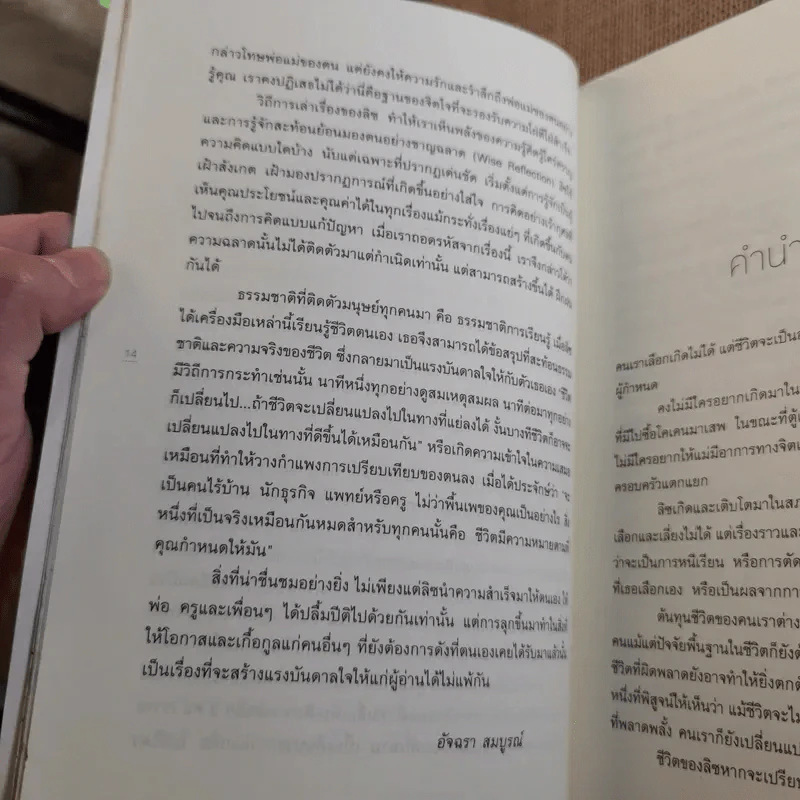 กล่าวโทษพ่อแม่ของตน แต่ยังคงให้ความรักและรำลึกถึงพ่อแม่ของตนอย่าง
รู้คุณ เราคงปฏิเสธไม่ได้ว่านี่คือฐานของจิตใจที่จะรองรับความ
วิถีการเล่าเรื่องของลิซ ทำให้เราเห็นพลังของความรู้คิดรู้ใคร่ครวญ
และการรู้จักสะท้อนย้อนมองตนอย่างชาญฉลาด (Wise Reflection)
ความคิดแบบใดบ้าง นับแต่เฉพาะที่ปรากฏเด่นชัด เริ่มตั้งแต่การรู้จักเป็นผู้
เฝ้าสังเกต เฝ้ามองปรากฏการณ์ที่เกิดขึ้นอย่างใส่ใจ การคิดอย่างเร้ากุศลที่
เห็นคุณประโยชน์และคุณค่าได้ในทุกเรื่องแม้กระทั่งเรื่องแย่ๆ ที่เกิดขึ้นกับตน
ไปจนถึงการคิดแบบแก้ปัญหา เมื่อเราถอดรหัสจากเรื่องนี้ เราจึงกล่าวได้ว่า
ความฉลาดนั้นไม่ได้ติดตัวมาแต่กำเนิดเท่านั้น แต่สามารถสร้างขึ้นได้ ฝึกฝน
กันได้
ธรรมชาติที่ติดตัวมนุษย์ทุกคนมา คือ ธรรมชาติการเรียนรู้ เมื่อลิซ
ได้เครื่องมือเหล่านี้เรียนรู้ชีวิตตนเอง เธอจึงสามารถได้ข้อสรุปที่สะท้อนธรรม
ชาติและความจริงของชีวิต ซึ่งกลายมาเป็นแรงบันดาลใจให้กับตัวเธอเอง "ชีวิต
มีวิถีการกระทำเช่นนั้น นาทีหนึ่งทุกอย่างดูสมเหตุสมผล นาทีต่อมาทุกอย่าง
ก็เปลี่ยนไป...ถ้าชีวิตจะเปลี่ยนแปลงไปในทางที่แย่ลงได้ งั้นบางทีชีวิตก็อาจจะ
เปลี่ยนแปลงไปในทางที่ดีขึ้นได้เหมือนกัน" หรือเกิดความเข้าใจในความเสมอ
เหมือนที่ทำให้วางกำแพงการเปรียบเทียบของตนลง เมื่อได้ประจักษ์ว่า "จะ
เป็นคนไร้บ้าน นักธุรกิจ แพทย์หรือครู ไม่ว่าพื้นเพของคุณเป็นอย่างไร สิ่ง
หนึ่งที่เป็นจริงเหมือนกันหมดสำหรับทุกคนนั้นคือ ชีวิตมีความหมายตามที่
คุณกำหนดให้มัน"
สิ่งที่น่าชื่นชมอย่างยิ่ง ไม่เพียงแต่ลิซนำความสำเร็จมาให้ตนเอง ให้
พ่อ ครูและเพื่อนๆ ได้ปลื้มปีติไปด้วยกันเท่านั้น แต่การลุกขึ้นมาทำในสิ่งที่
ให้โอกาสและเกื้อกูลแก่คนอื่นๆ ที่ยังต้องการดังที่ตนเองเคยได้รับมาแล้วนั้น
เป็นเรื่องที่จะสร้างแรงบันดาลใจให้แก่ผู้อ่านได้ไม่แพ้กัน
อัจฉรา สมบูรณ์
14
คำนำ
คนเราเลือกเกิดไม่ได้ แต่ชีวิตจะเป็น
ผู้กำหนด
คงไม่มีใครอยากเกิดมาใน
ที่มีไปซื้อโคเคนมาเสพ ในขณะที่ตู้
ไม่มีใครอยากให้แม่มีอาการทางจิต
ครอบครัวแตกแยก
ลิซเกิดและเติบโตมาในสภ
เลือกและเลี่ยงไม่ได้ แต่เรื่องราวแล
ว่าจะเป็นการหนีเรียน หรือการตัด
ที่เธอเลือกเอง หรือเป็นผลจากกา
ต้นทุนชีวิตของคนเราต่าง
คนแม้แต่ปัจจัยพื้นฐานในชีวิตก็ยังต้
ชีวิตที่ผิดพลาดยังอาจทำให้ยิ่งตกต่
หนึ่งที่พิสูจน์ให้เห็นว่า แม้ชีวิตจะไม่
ที่พลาดพลั้ง คนเราก็ยังเปลี่ยนแป
ชีวิตของลิซหากจะเปรีย